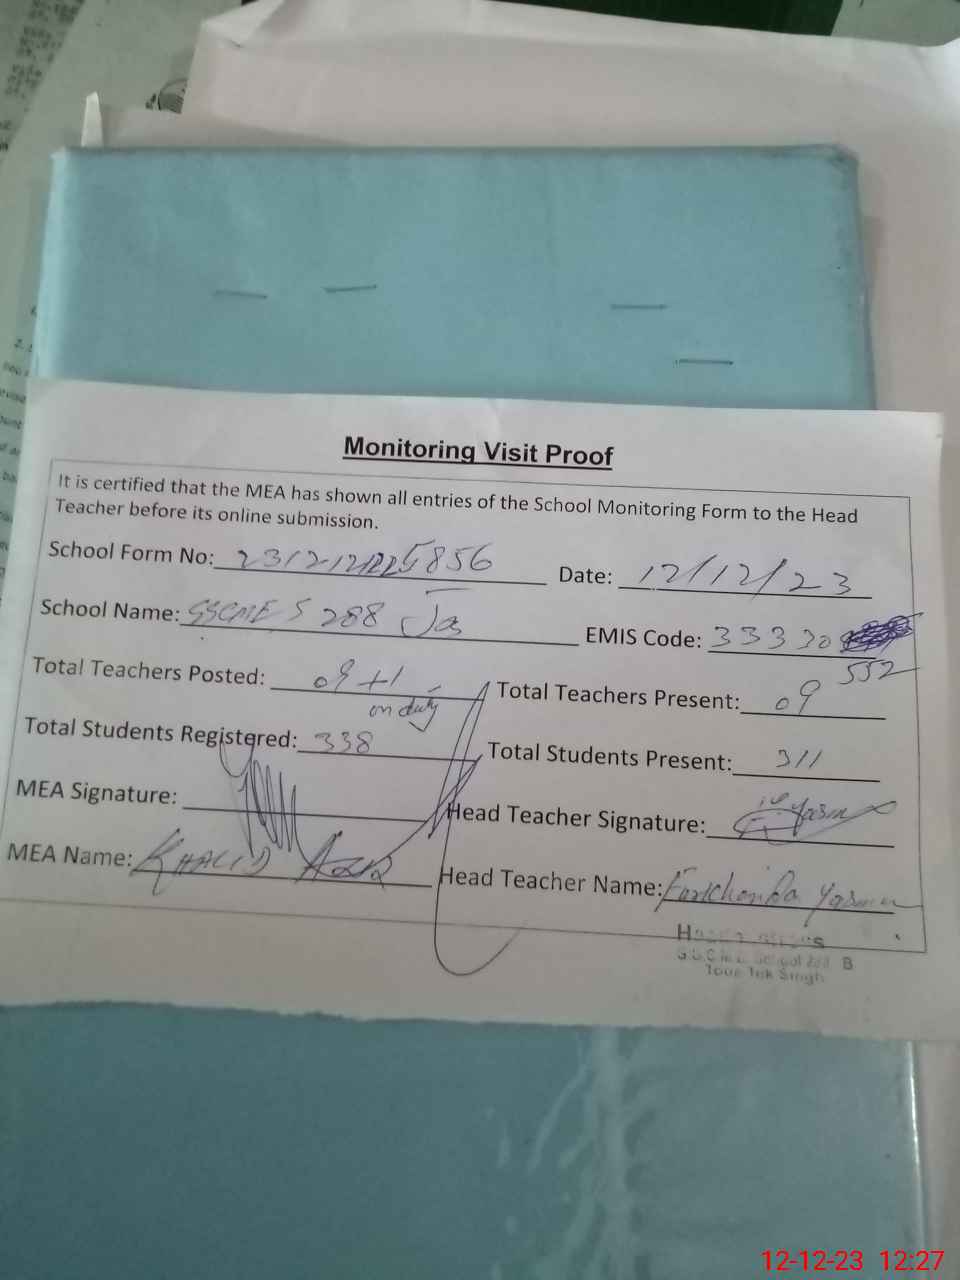 Monitoring Visit Proof
It is certified that the MEA has shown all entries of the School Monitoring Form to the Head
Teacher before its online submission.
School Form No: Date: 12/12/23
School Name: 288 EMIS Code: 33330
552
Total Teachers Posted: 09+1 Total Teachers Present: 09
on duty
Total Students Registered: 338 Total Students Present: 311
MEA Signature: Head Teacher Signature:
MEA Name: KHALID Head Teacher Name: Yasmin
School B
Toba Tek Singh
12-12-23 12:27